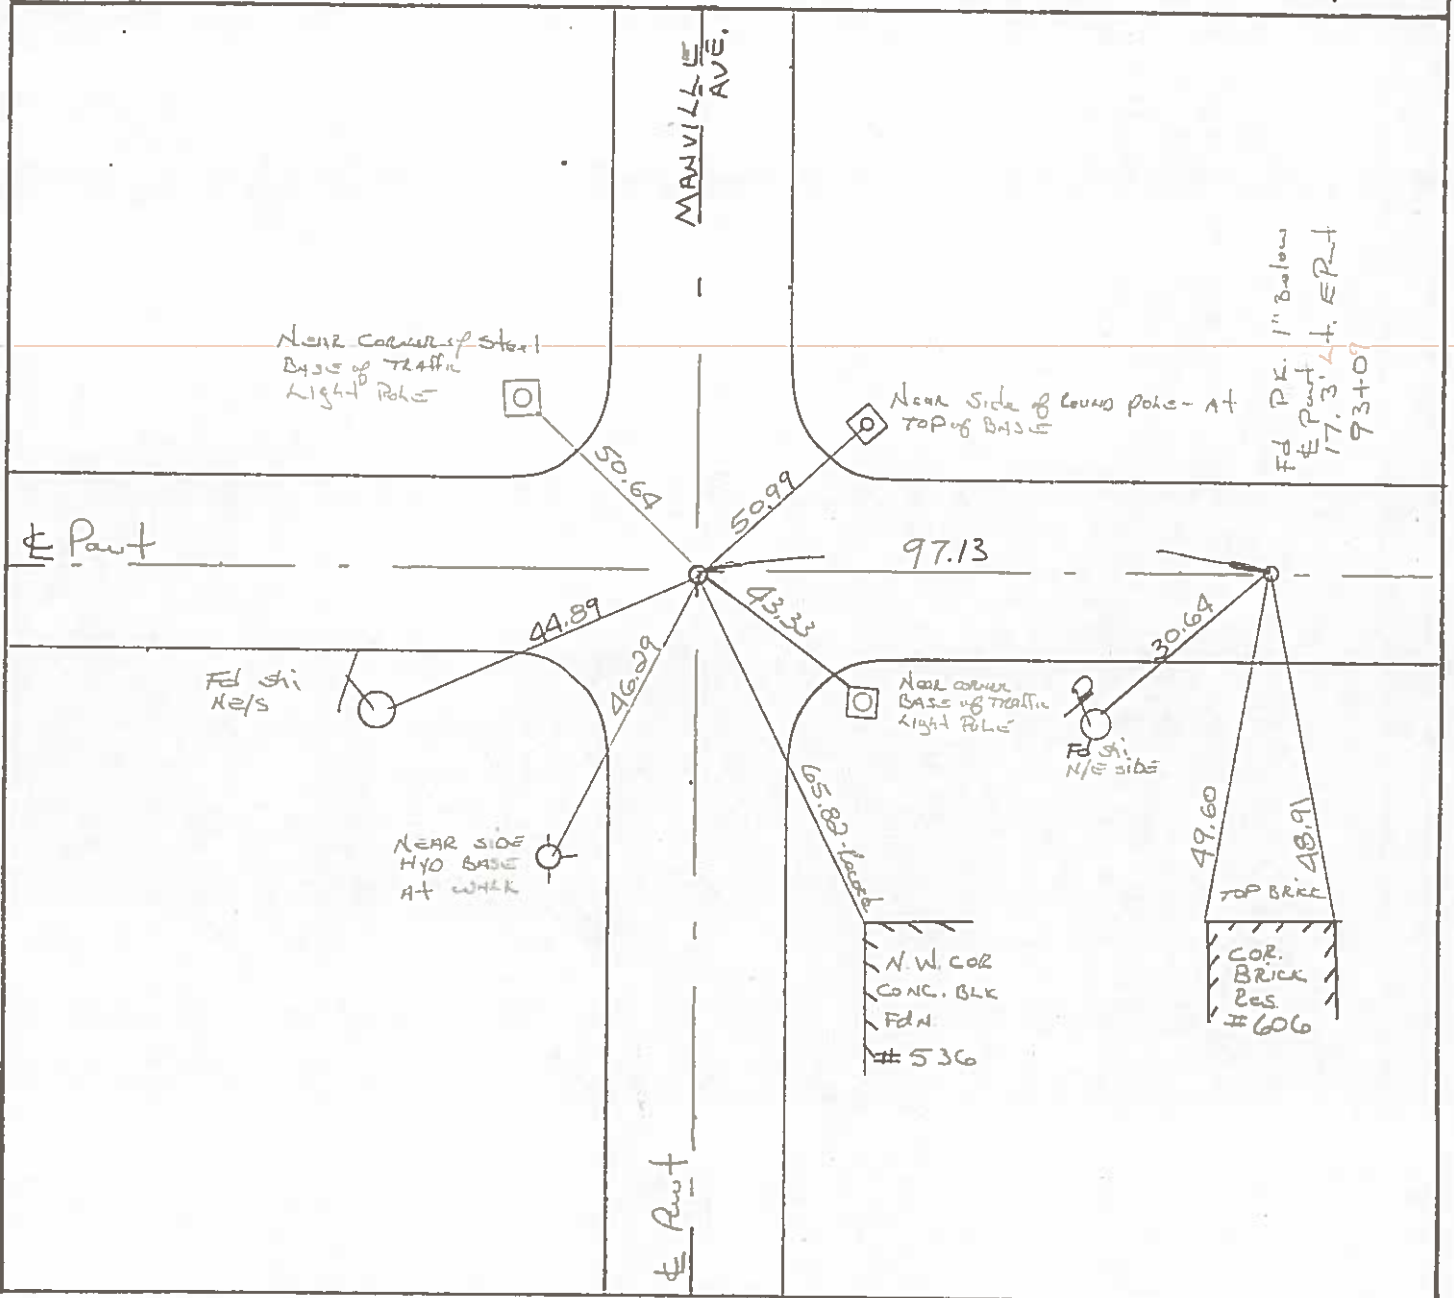 MANVILLE
AVE.
NEAR CORNER of Steel
BASE of TRAffic
Light Pole
Near Side of Round pole - At
TOP of BASE
Fd P.K. 1" Below
℄ Pvmt
17.3' Lt. E Pvmt
93+07
50.64
50.99
℄ Pavt
97.13
44.89
43.33
30.64
46.29
Fd shi
NE/S
Near corner
BASE of Traffic
Light Pole
Fd shi
N/E SIDE
65.82
49.60
48.91
NEAR SIDE
HYD BASE
At WALK
TOP BRICK
N.W. COR
CONC. BLK
FdN
# 536
COR.
BRICK
Res.
# 606
℄ Pavt